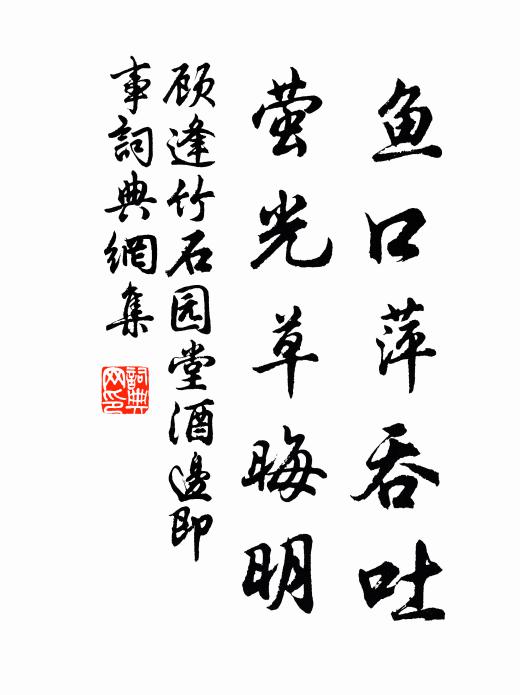 鱼口萍吞吐
萤光草晦明
顾逢竹石园堂酒邊即
事詞典網集
詞典
网印